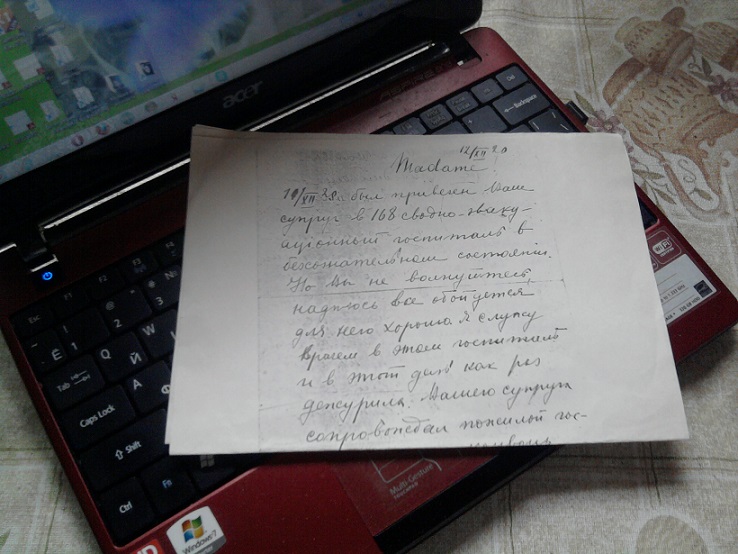 acer
12/XII 20
Madame,
10/XII был привезен Ваш
супруг в 168 сводно-эваку-
аціонный госпиталь в
безсознательном состояніи.
Но Вы не волнуйтесь,
надеюсь все обойдется
для него хорошо. Я служу
врачем в этом госпиталѣ
и в этот день как раз
дежурила. Вашего супруга
сопровождал пожилой гос-
Backspace
Ctrl
Esc
F1
F2
F3
F4
F5
Ё
1
2
3
№
Tab
Q
Й
W
Caps Lock
A
Shift
Ctrl
Fn
Multi-Gesture
Windows 7
Wi Fi